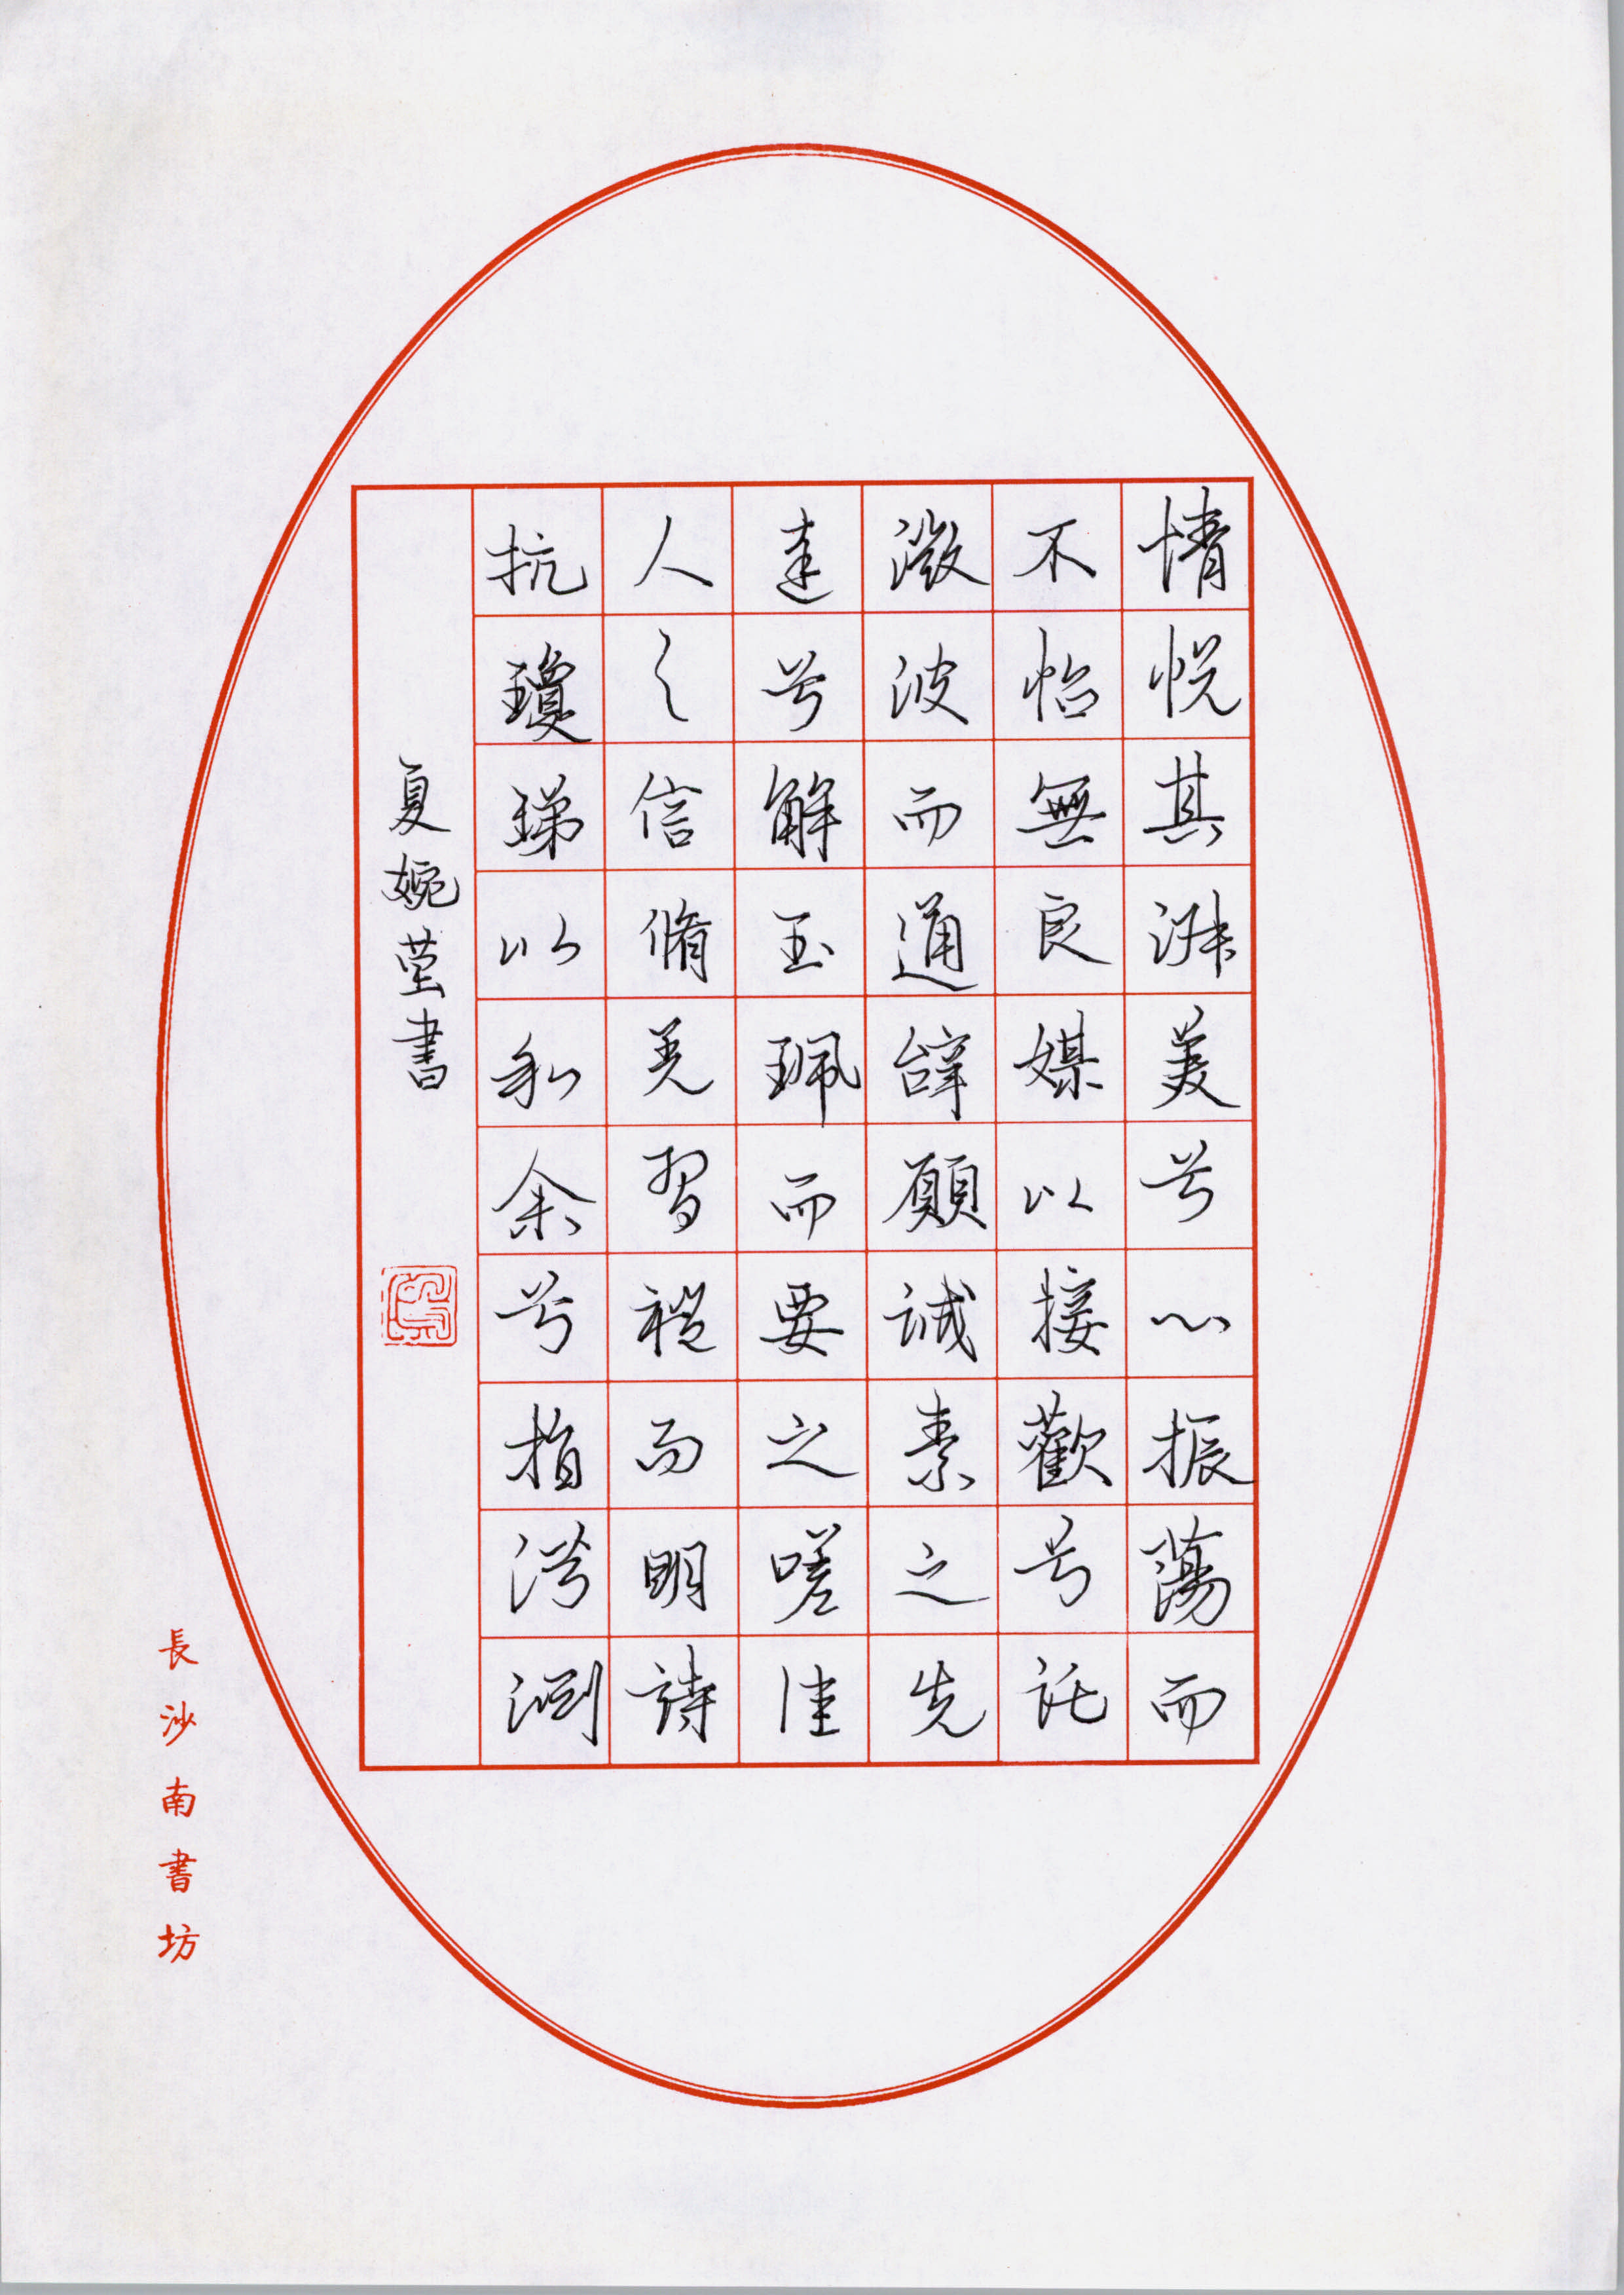 情悦其淑美兮心振蕩而
不怡無良媒以接歡兮託
微波而通辝願誠素之先
達兮解玉珮而要之嗟佳
人之信脩羌習禮而明詩
抗瓊珶以和余兮指潛淵
夏婉莹書
長沙南書坊